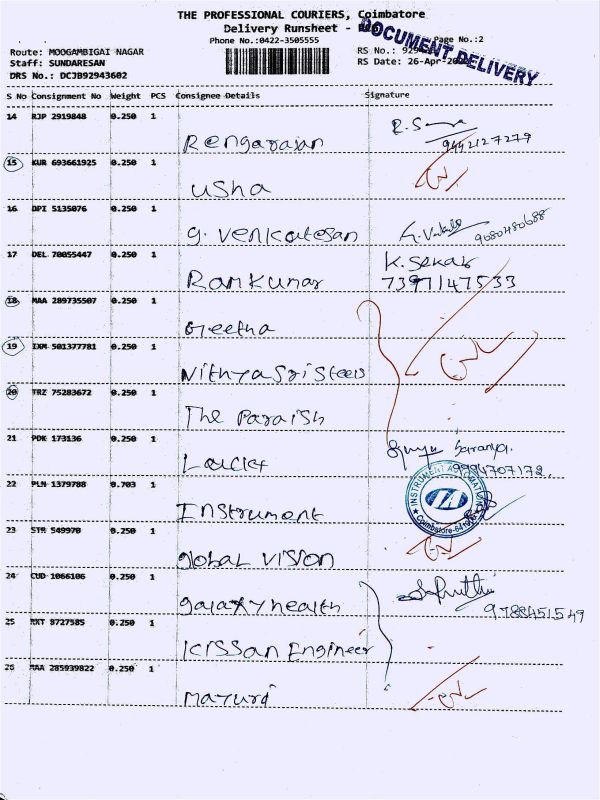 THE PROFESSIONAL COURIERS, Coimbatore
Delivery Runsheet -
DOCUMENT DELIVERY
Phone No.:0422-3505555
Page No.:2
Route: MOOGAMBIGAI NAGAR
Staff: SUNDARESAN
DRS No.: DCJB92943602
RS No.:
RS Date: 26-Apr-
S No Consignment No Weight PCS Consignee Details Signature
14 RJP 2919848 0.250 1 Rengarajan
9442127279
15 KUR 693661925 0.250 1 Usha
16 DPI 5135076 0.250 1 G. Venkatesan
9080480688
17 DEL 70055447 0.250 1 Ramkumar K. Sekar
7397147533
18 MAA 289735507 0.250 1 Geetha
19 IXM 501377781 0.250 1 Nithyasri Steels
20 TRZ 75283672 0.250 1 The Paraish
21 PDK 173136 0.250 1 Saranya.
9994707172.
22 PLN 1379788 0.703 1 Instrument
INSTRUMENT
Coimbatore-
23 STR 549970 0.250 1 Global Vision
24 CUD 1066106 0.250 1 galaxy health
9788451549
25 RXT 8727585 0.250 1 Kissan Engineer
26 MAA 285939822 0.250 1 Mayuri